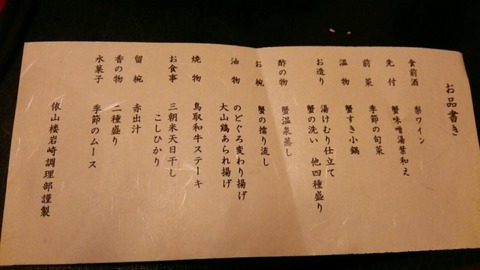 お品書き
食前酒 梨ワイン
先付 蟹味噌湯葉和え
前菜 季節の旬菜
温物 蟹すき小鍋
お造り 湯けむり仕立て
蟹の洗い 他四種盛り
酢の物 蟹温泉蒸し
お椀 蟹の摺り流し
油物 のどぐろ変わり揚げ
大山鶏あられ揚げ
焼物 鳥取和牛ステーキ
お食事 三朝米天日干し
こしひかり
留椀 赤出汁
香の物 二種盛り
水菓子 季節のムース
依山楼岩崎調理部謹製